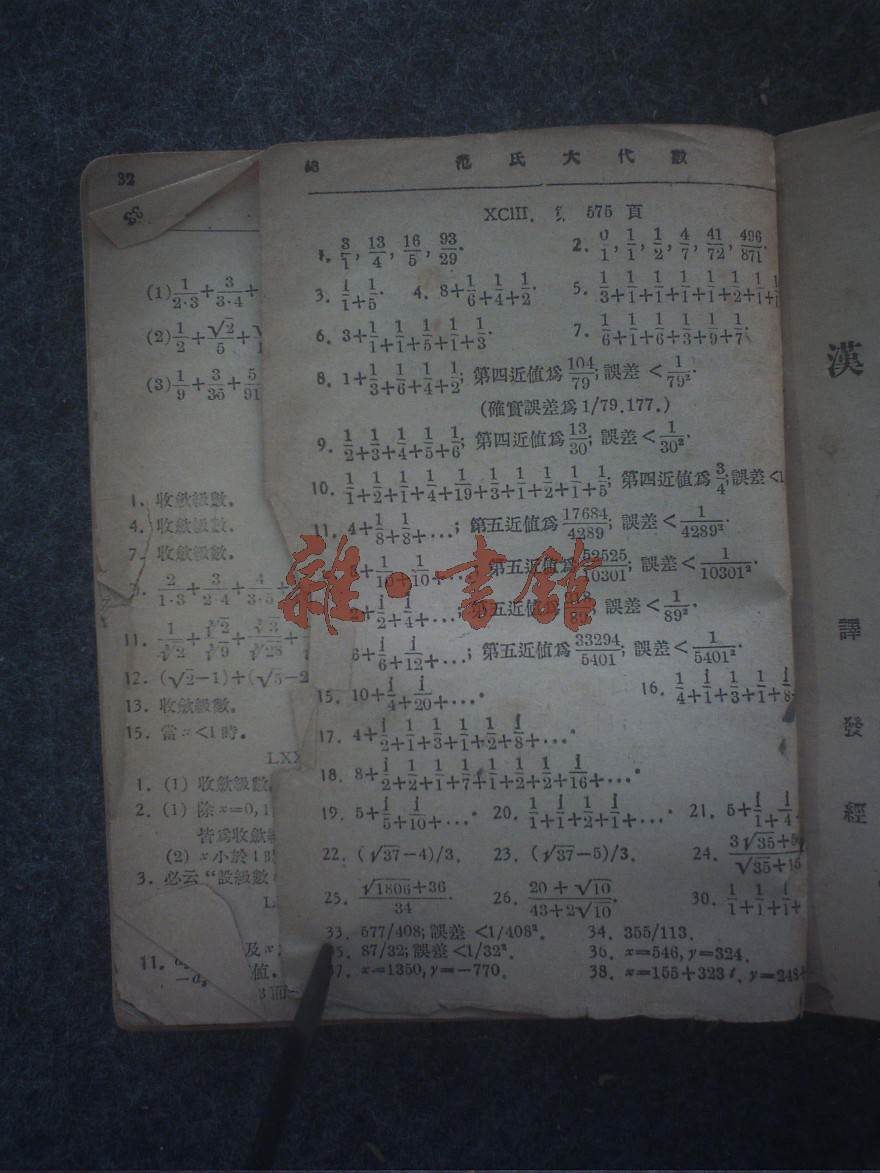 32
33
(1) 1/2·3 + 3/3·4 +
(2) 1/2 + √2/5 +
(3) 1/9 + 3/35 + 5/91
1. 收斂級數。
4. 收斂級數。
7. 收斂級數。
2/1·3 + 3/2·4 + 4/3·5 +
11. 1/∛2 + ∛2/∛9 + ∛3/∛28 +
12. (√2−1)+(√5−2
13. 收斂級數。
15. 當 x<1 時。
LXX
1. (1) 收斂級數。
2. (1) 除 x=0, 1
皆爲收斂級
(2) x 小於 1 時
3. 必云“設級數
L
及 x
11.
值。
48 范氏大代數
XCIII. 575 頁
1. 3/1, 13/4, 16/5, 93/29. 2. 0/1, 1/1, 1/2, 4/7, 41/72, 496/871.
3. 1/1+ 1/5. 4. 8+ 1/6+ 1/4+ 1/2. 5. 1/3+ 1/1+ 1/1+ 1/1+ 1/1+ 1/2+ 1/1+
6. 3+ 1/1+ 1/1+ 1/5+ 1/1+ 1/3. 7. 1/6+ 1/1+ 1/6+ 1/3+ 1/9+ 1/7.
8. 1+ 1/3+ 1/6+ 1/4+ 1/2; 第四近值爲 104/79; 誤差 < 1/79².
(確實誤差爲 1/79.177.)
9. 1/2+ 1/3+ 1/4+ 1/5+ 1/6; 第四近值爲 13/30; 誤差 < 1/30².
10. 1/1+ 1/2+ 1/1+ 1/4+ 1/19+ 1/3+ 1/1+ 1/2+ 1/1+ 1/5; 第四近值爲 3/4; 誤差 <1
11. 4+ 1/8+ 1/8+ ...; 第五近值爲 17684/4289; 誤差 < 1/4289².
1/10+ 1/10+ ... 第五近值爲 52525/10301; 誤差 < 1/10301².
1/2+ 1/4+ ...; 第五近值爲 /89; 誤差 < 1/89².
6+ 1/6+ 1/12+ ...; 第五近值爲 33294/5401; 誤差 < 1/5401².
15. 10+ 1/4+ 1/20+ .... 16. 1/4+ 1/1+ 1/3+ 1/1+ 1/8+
17. 4+ 1/2+ 1/1+ 1/3+ 1/1+ 1/2+ 1/8+ ....
18. 8+ 1/2+ 1/2+ 1/1+ 1/7+ 1/1+ 1/2+ 1/2+ 1/16+ ....
19. 5+ 1/5+ 1/10+ .... 20. 1/1+ 1/1+ 1/2+ 1/1+ .... 21. 5+ 1/1+ 1/4
22. (√37−4)/3. 23. (√37−5)/3. 24. 3√35+/√35+15
25. √1806+36/34. 26. 20+√10/43+2√10. 30. 1/1+ 1/1+ 1/1+
33. 577/408; 誤差 <1/408². 34. 355/113.
35. 87/32; 誤差 <1/32². 36. x=546, y=324.
37. x=1350, y=−770. 38. x=155+323t, y=248+
雜·書館
漢
譯
發
經